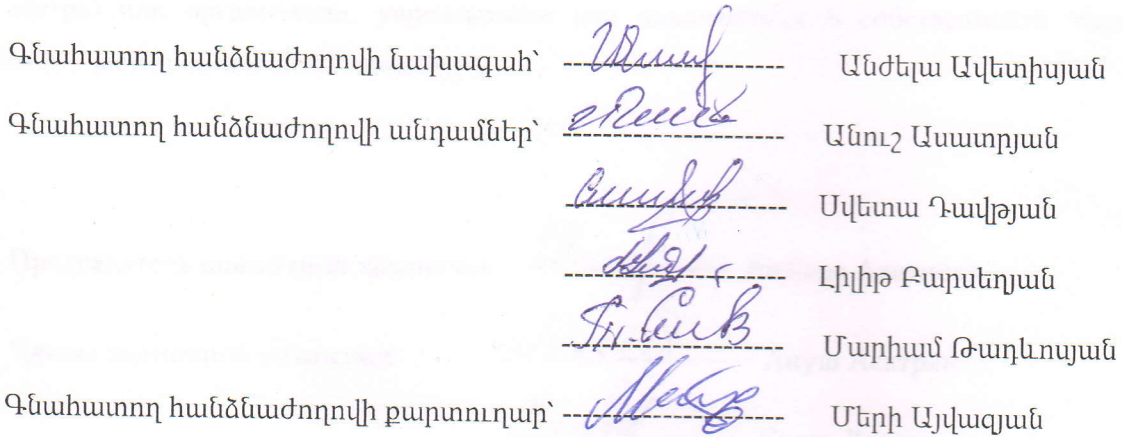 Գնահատող հանձնաժողովի նախագահ՝ ---------------------- Անժելա Ավետիսյան
Գնահատող հանձնաժողովի անդամներ՝ ---------------------- Անուշ Ասատրյան
---------------------- Սվետա Դավթյան
---------------------- Լիլիթ Բարսեղյան
---------------------- Մարիամ Թադևոսյան
Գնահատող հանձնաժողովի քարտուղար՝ ---------------------- Մերի Այվազյան